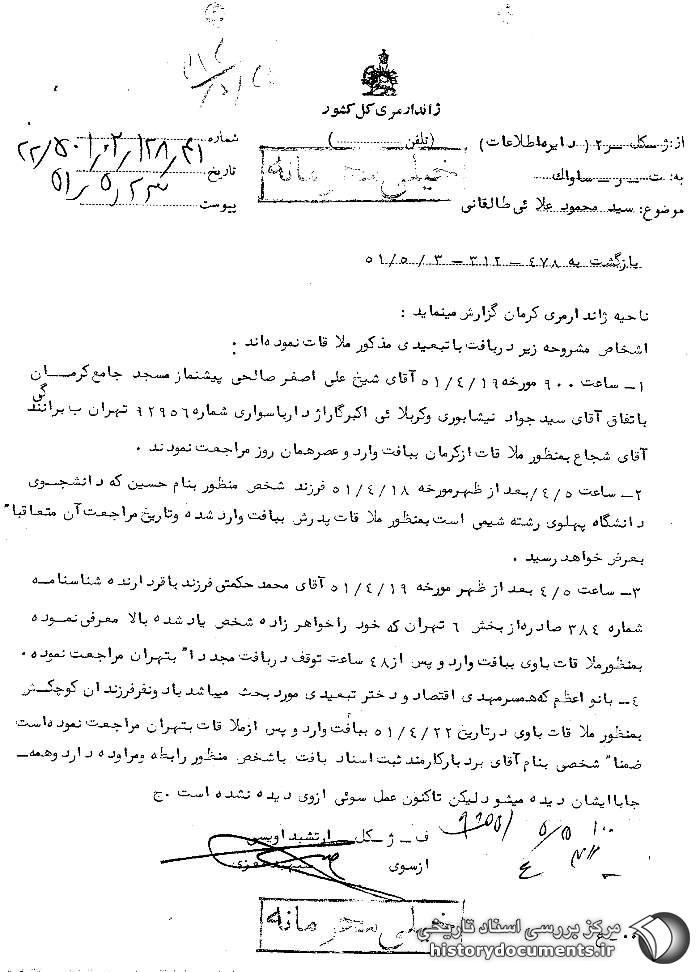 ژاندارمری کل کشور
از: ژ کل ـ ر۲ (دایره اطلاعات) (تلفن) شماره ۲۲/۵۰۱/۰۲/۱۲۸/۴۱
به: ت ـ ر ـ ساواك خیلی محرمانه تاریخ ۵۱/۵/۲۳
موضوع: سید محمود علائی طالقانی پیوست
بازگشت به ۴۷۸ ـ ۳۱۲ ـ ۵۱/۵/۳
ناحیه ژاندارمری کرمان گزارش مینماید :
اشخاص مشروحه زیر در بافت با تبعیدی مذکور ملاقات نموده‌اند .
۱ـ ساعت ۹۰۰ مورخه ۵۱/۴/۱۹ آقای شیخ علی اصغر صالحی پیشنماز مسجد جامع کرمان
باتفاق آقای سید جواد نیشابوری وکربلائی اکبرگاراژدار باسواری شماره ۹۲۹۵۶ تهران ب برانندگی
آقای شجاع بمنظور ملاقات ازکرمان ببافت وارد و عصرهمان روز مراجعت نمودند .
۲ـ ساعت ۴/۵/بعد از ظهرمورخه ۵۱/۴/۱۸ فرزند شخص منظور بنام حسین که دانشجوی
دانشگاه پهلوی رشته شیمی است بمنظور ملاقات پدرش ببافت وارد شده وتاریخ مراجعت آن متعاقبا"
بعرض خواهد رسید .
۳ـ ساعت ۴/۵ بعد از ظهر مورخه ۵۱/۴/۱۹ آقای محمد حکمتی فرزند باقر دارنده شناسنامه
شماره ۳۸۴ صادره‌از بخش ۶ تهران که خود را خواهر زاده شخص یاد شده بالا معرفی نموده
بمنظورملاقات باوی ببافت وارد و پس از ۴۸ ساعت توقف در بافت مجددا" بتهران مراجعت نموده .
۴ـ بانو اعظم که‌همسر مهدی اقتصاد و دختر تبعیدی مورد بحث میباشد با دونفرفرزندان کوچکش
بمنظور ملاقات باوی در تاریخ ۵۱/۴/۲۲ ببافت وارد و پس ازملاقات بتهران مراجعت نموده‌است
ضمنا" شخصی بنام آقای بردبار کارمند ثبت اسناد بافت باشخص منظور رابطه ومراوده دارد وهمه‌ـ
جاباایشان دیده میشود لیکن تاکنون عمل سوئی ازوی دیده نشده است . ج
ف ـ ژ ـ کل ـ ارتشبد اویسی
ازسوی
خیلی محرمانه
مرکز بررسی اسناد تاریخی
historydocuments.ir